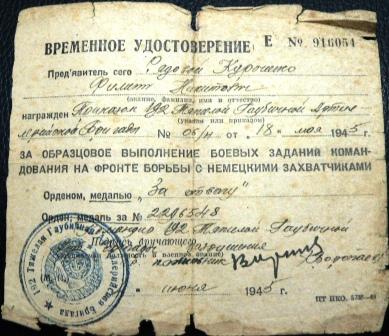 ВРЕМЕННОЕ УДОСТОВЕРЕНИЕ Е № 916054
Пред'явитель сего Рядовой Курошко
Филипп Никитович
(звание, фамилия, имя и отчество)
награжден Приказом 192 Тяжелой Гаубичной Артил
лерийской Бригады № 06/н от "18" мая 1945
ЗА ОБРАЗЦОВОЕ ВЫПОЛНЕНИЕ БОЕВЫХ ЗАДАНИЙ КОМАН-
ДОВАНИЯ НА ФРОНТЕ БОРЬБЫ С НЕМЕЦКИМИ ЗАХВАТЧИКАМИ
Орденом, медалью "За отвагу"
Орден, медаль за № 2296548
192 Тяжелой Гаубичной
Подпись вручающего
полковник
июня 1945
192 Тяжелая Гаубичная Бригада